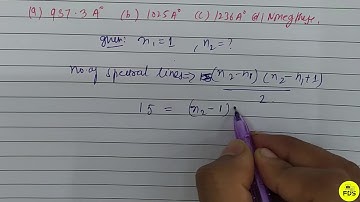 (a) 937.3 A° (b) 1025 A° (c) 1236 A° (d) None of these.
given: n₁ = 1 , n₂ = ?
no of spectral lines ⇒ (n₂-n₁) (n₂-n₁+1)
2
15 = (n₂-1)
FDS